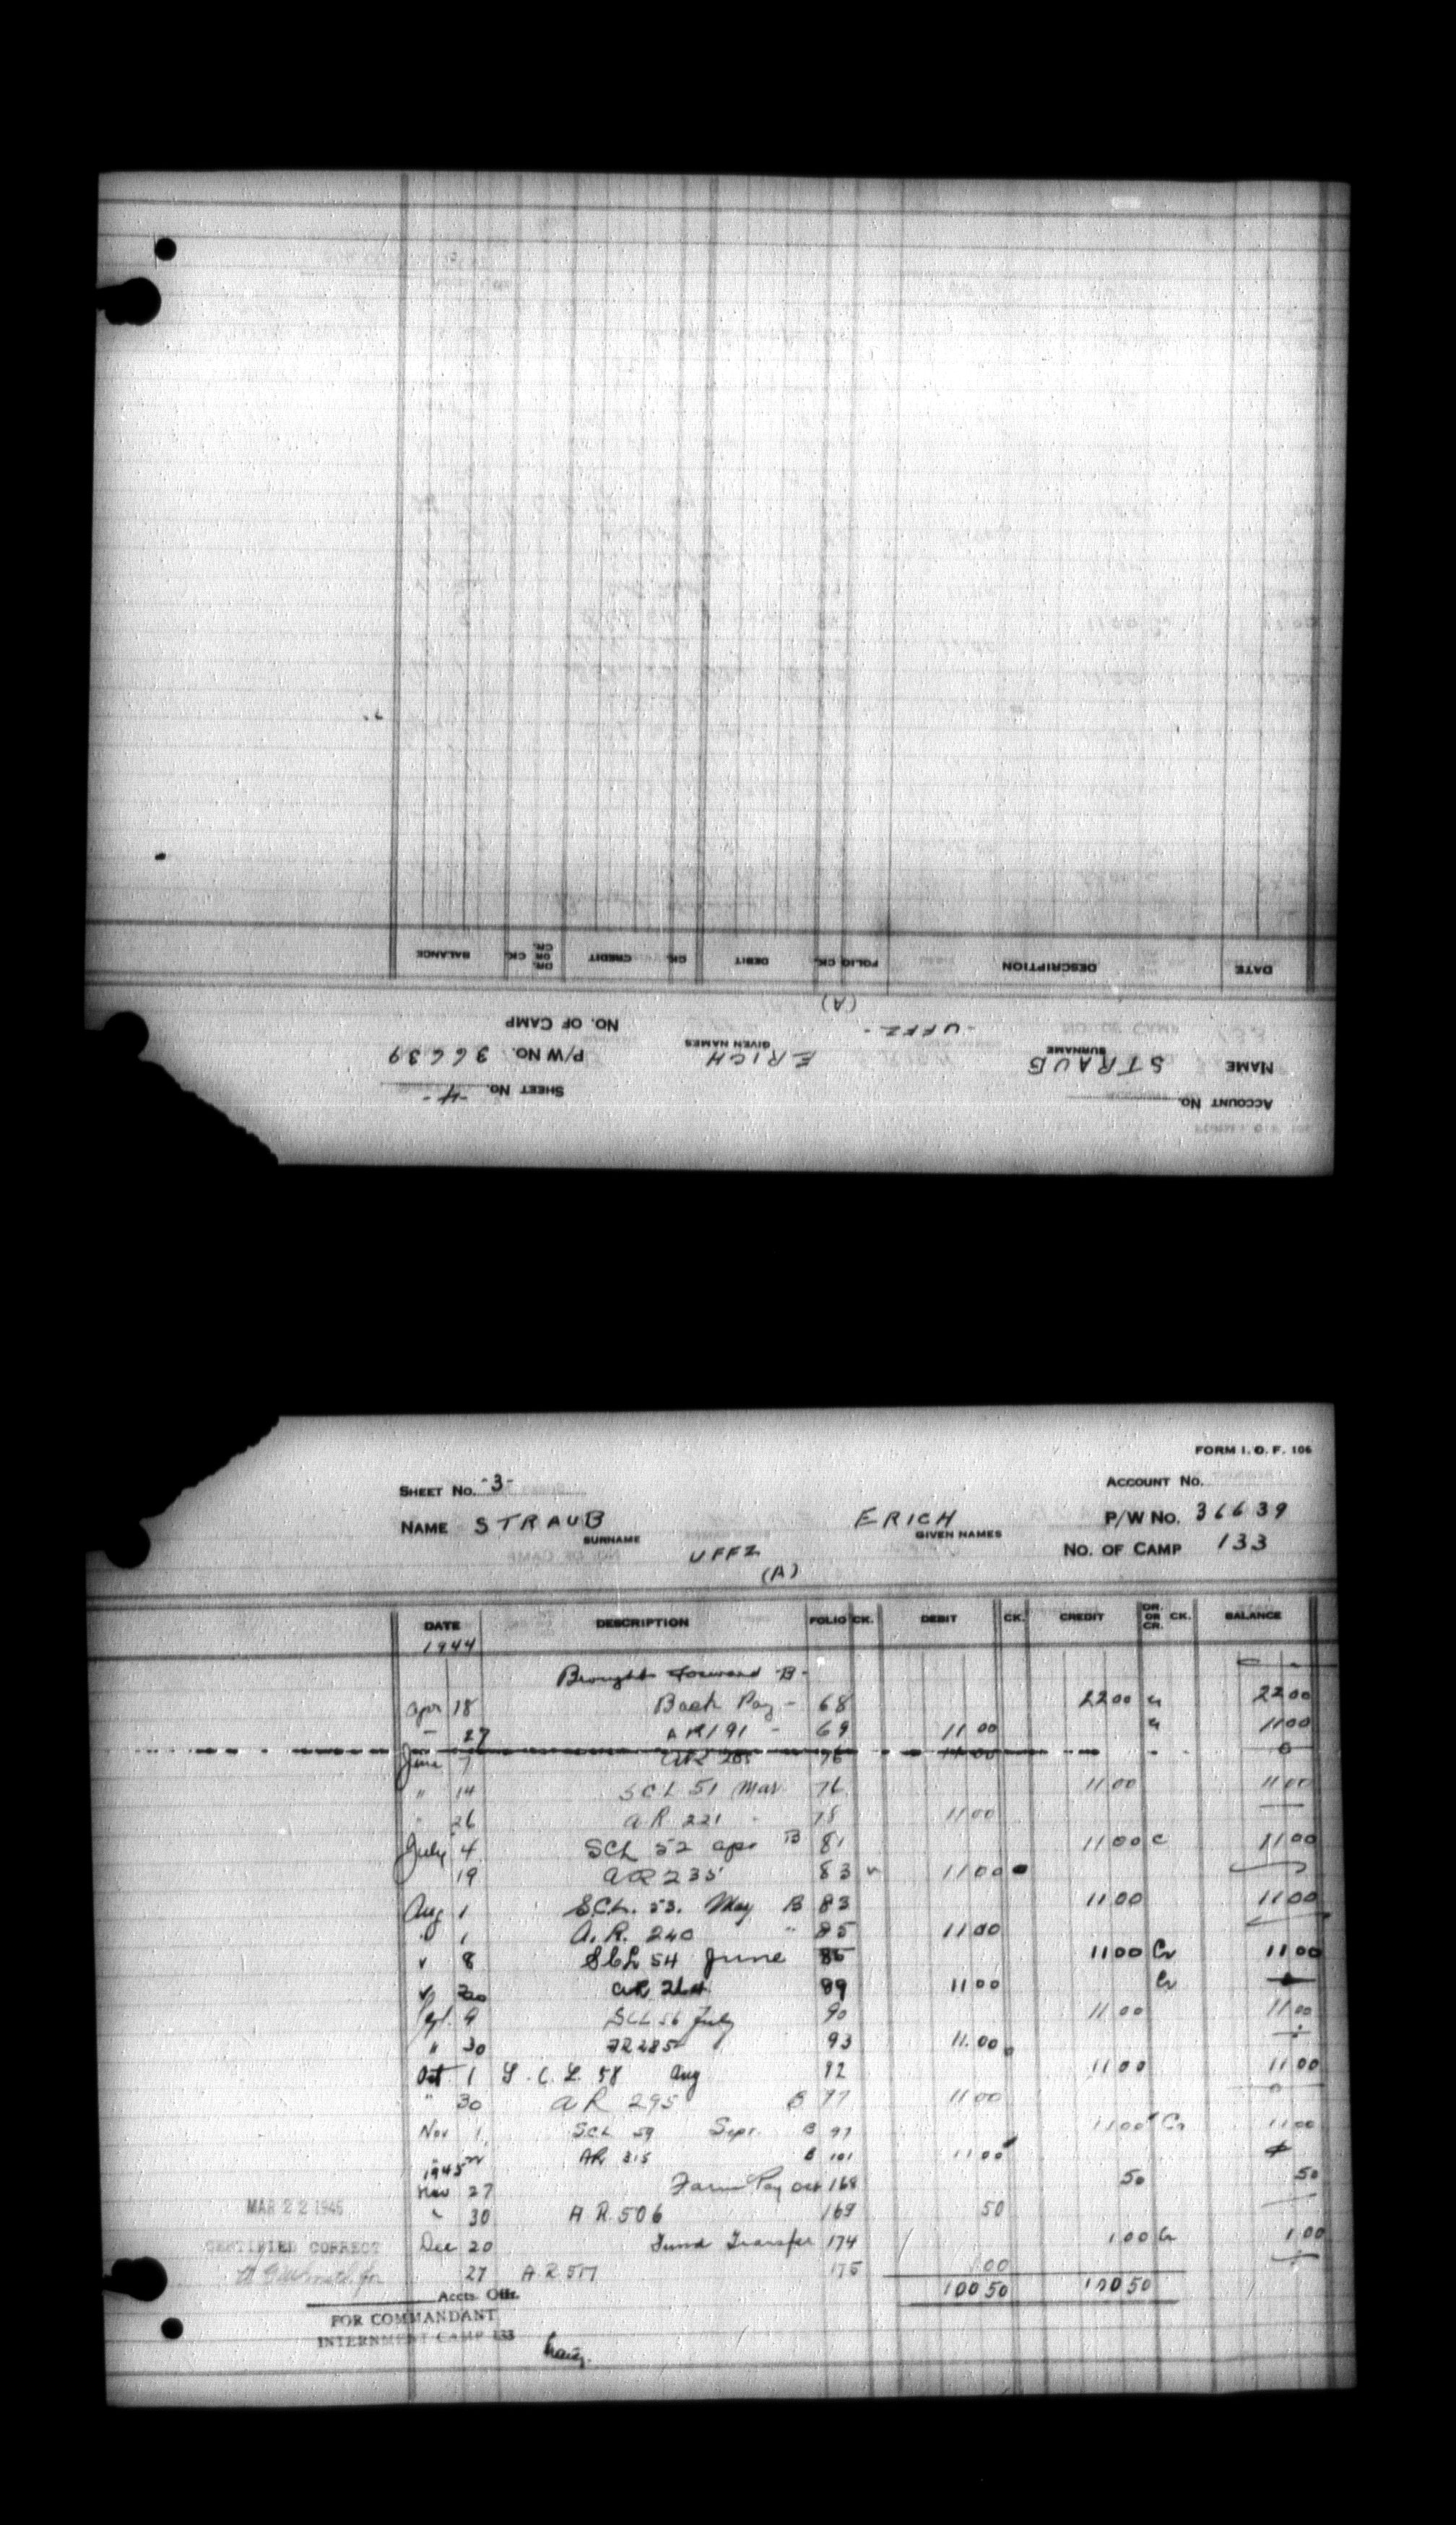 ACCOUNT No.
SHEET No. -4-
NAME STRAUB ERICH P/W No. 36639
SURNAME GIVEN NAMES
-UFFZ- NO. OF CAMP
(A)
DATE DESCRIPTION FOLIO CK. DEBIT CK. CREDIT DR. OR CR. CK. BALANCE
FORM I.O.F. 106
SHEET No. -3- ACCOUNT No.
NAME STRAUB ERICH P/W No. 36639
SURNAME GIVEN NAMES
UFFZ NO. OF CAMP 133
(A)
DATE DESCRIPTION FOLIO CK. DEBIT CK. CREDIT DR. OR CR. CK. BALANCE
1944
Brought Forward B-
Apr 18 Back Pay - 68 22 00 22 00
" 27 AR 191 - 69 11 00 11 00
June 7 AR 76 11 00 0
" 14 SCL 51 Mar 76 11 00 11 00
" 26 AR 221 - 78 11 00
July 4 SCL 52 Apr B 81 11 00 C 11 00
19 AR 235 83 11 00
Aug 1 S.C.L. 53. May B 83 11 00 11 00
" 1 A.R. 240 " 85 11 00
" 8 SCL 54 June 85 11 00 Cr 11 00
" 30 AR 264 89 11 00 Cr
Sept. 9 SCL 56 July 90 11 00 11 00
" 30 AR 285 93 11.00
Oct 1 S.C.L. 58 Aug 92 11 00 11 00
" 30 AR 295 B 97 11 00
Nov 1 SCL 59 Sept. B 97 11 00 Cr 11 00
AR 315 B 101 11 00
1945
Nov 27 Farm Pay Oct 168 50 50
" 30 A R. 506 169 50
MAR 22 1946
Dec 20 Fund Transfer 174 1 00 Cr 1 00
CERTIFIED CORRECT
27 A R 517 175 1 00
100 50 100 50
Accts. Offr.
FOR COMMANDANT
INTERNMENT CAMP 133